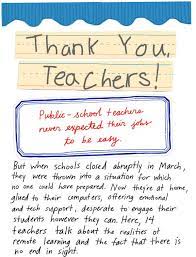 Thank You,
Teachers!
Public-school teachers
never expected their jobs
to be easy.
But when schools closed abruptly in March,
they were thrown into a situation for which
no one could have prepared. Now they're at home,
glued to their computers, offering emotional
and tech support, desperate to engage their
students however they can. Here, 14
teachers talk about the realities of
remote learning and the fact that there
is no end in sight.